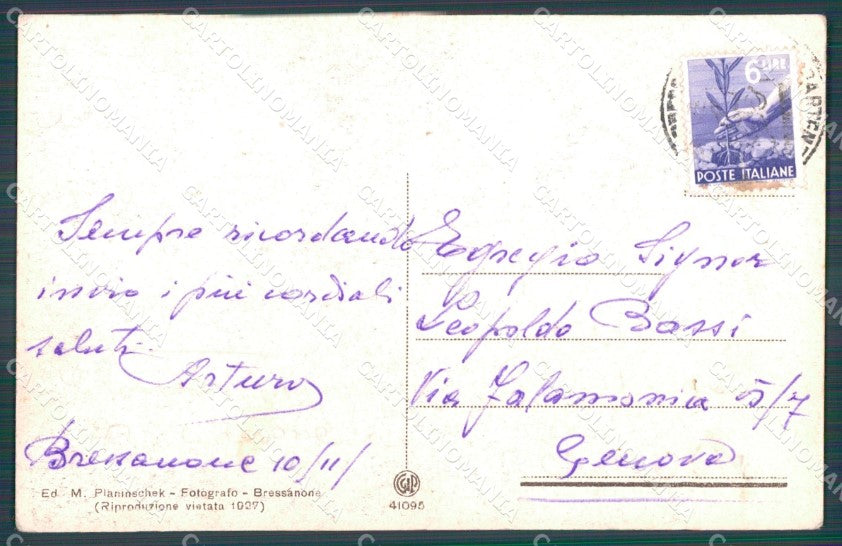 6 LIRE
POSTE ITALIANE
Sempre ricordando
invio i più cordiali
saluti
Arturo
Bressanone 10/11/
Egregio Signor
Leopoldo Bassi
Via 5/7
Genova
Ed. M. Planinschek - Fotografo - Bressanone
(Riproduzione vietata 1927)
41095
CARTOLINOMANIA